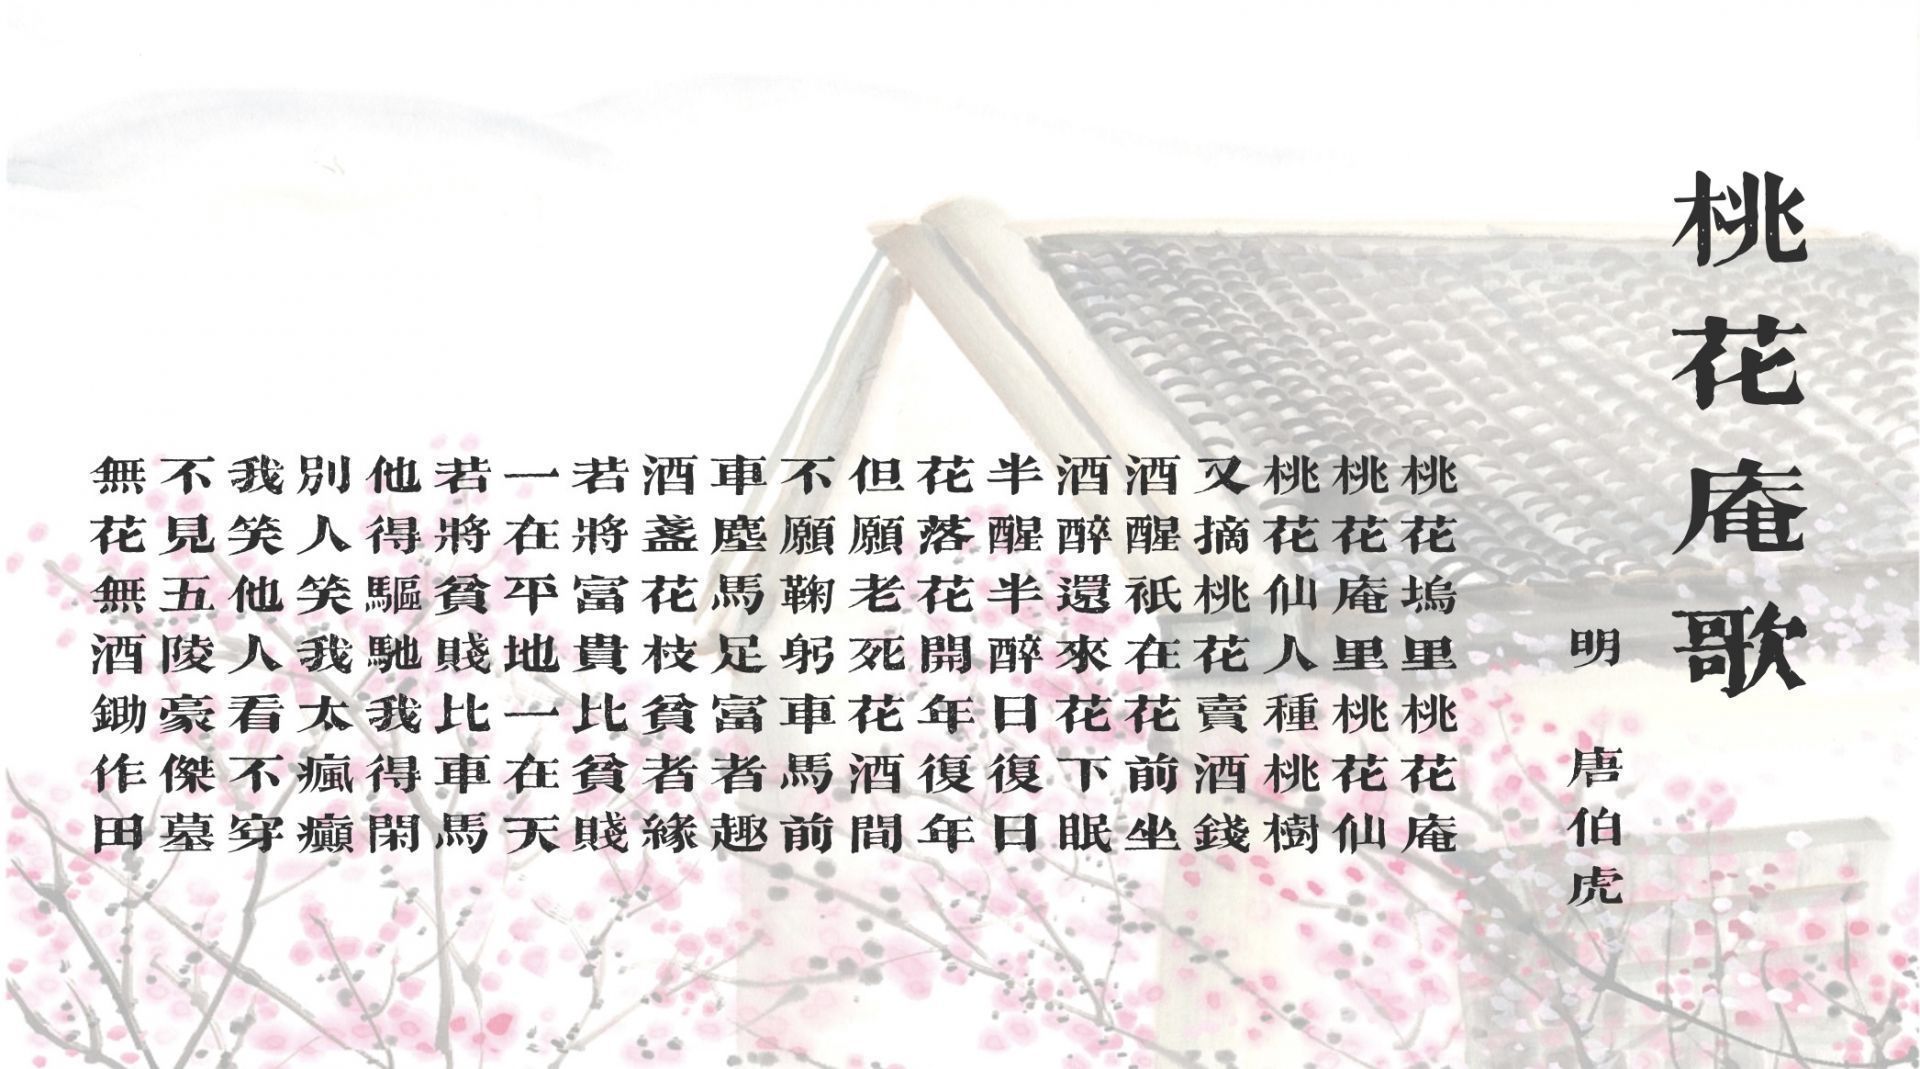 桃花庵歌
明 唐伯虎
桃花塢里桃花庵
桃花庵里桃花仙
桃花仙人種桃樹
又摘桃花賣酒錢
酒醒衹在花前坐
酒醉還來花下眠
半醒半醉日復日
花落花開年復年
但願老死花酒間
不願鞠躬車馬前
車塵馬足富者趣
酒盞花枝貧者緣
若將富貴比貧賤
一在平地一在天
若將貧賤比車馬
他得驅馳我得閑
別人笑我太瘋癲
我笑他人看不穿
不見五陵豪傑墓
無花無酒鋤作田